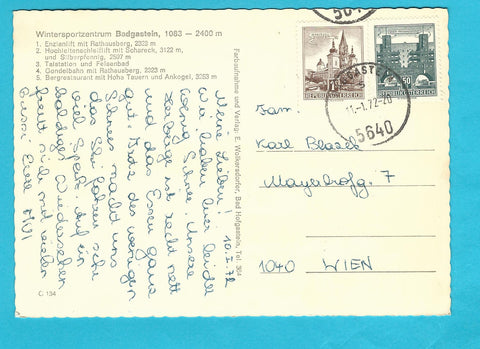 Wintersportzentrum Badgastein, 1083 — 2400 m
1. Enzianlift mit Rathausberg, 2323 m
2. Hochleitenschleiflift mit Schareck, 3122 m,
und Silberpfennig, 2597 m
3. Talstation und Felsenbad
4. Gondelbahn mit Rathausberg, 2323 m
5. Bergrestaurant mit Hohe Tauern und Ankogel, 3253 m
10. I. 72
Meine Lieben!
Wir haben hier leider
wenig Schnee. Unsere
Herberge ist recht nett
und das Essen ganz
gut. Trotz des wenigen
Schnees macht uns
das Schi fahren sehr
viel Spaß. Auf ein
baldiges Wiedersehen
freut sich mit vielen
Bussi Eure
C 134
Farbaufnahme und Verlag: E. Wolkersdorfer, Bad Hofgastein, Tel. 304
REPUBLIK ÖSTERREICH
50
REPUBLIK ÖSTERREICH
11.-1.72-20
5640
Fam.
Karl Blasek
Mayerhofg. 7
1040 WIEN